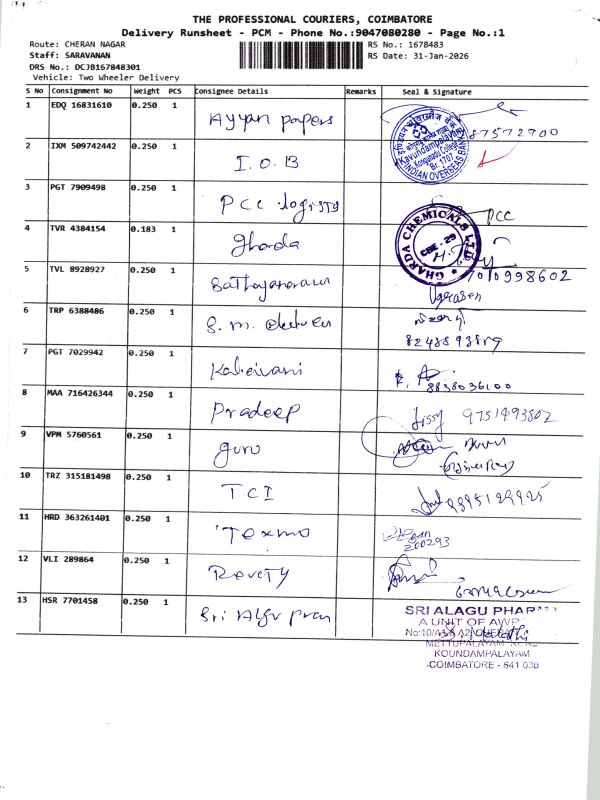 THE PROFESSIONAL COURIERS, COIMBATORE
Delivery Runsheet - PCM - Phone No.:9047080280 - Page No.:1
Route: CHERAN NAGAR
RS No.: 1678483
Staff: SARAVANAN
RS Date: 31-Jan-2026
DRS No.: DCJB167848301
Vehicle: Two Wheeler Delivery
S No Consignment No Weight PCS Consignee Details Remarks Seal & Signature
1 EDQ 16831610 0.250 1 Ayyan papers
2 IXM 509742442 0.250 1 I.O.B
Kavundampalayam
Br. 1707
INDIAN OVERSEAS BANK
3 PGT 7909498 0.250 1 PCC logistg PCC
4 TVR 4384154 0.183 1 gharda
GHARDA CHEMICALS LTD
CBE - 29
5 TVL 8928927 0.250 1 7010998602
6 TRP 6388486 0.250 1 S.m.
7 PGT 7029942 0.250 1 Kaleivani
8838036100
8 MAA 716426344 0.250 1 Pradeep 9751493802
9 VPM 5760561 0.250 1 guru
10 TRZ 315181498 0.250 1 TCI
11 HRD 363261401 0.250 1 Texmo
200293
12 VLI 289864 0.250 1
13 HSR 7701458 0.250 1 Sri
SRI ALAGU PHARMA
A UNIT OF AWP
METTUPALAYAM
KOUNDAMPALAYAM
COIMBATORE - 641 030